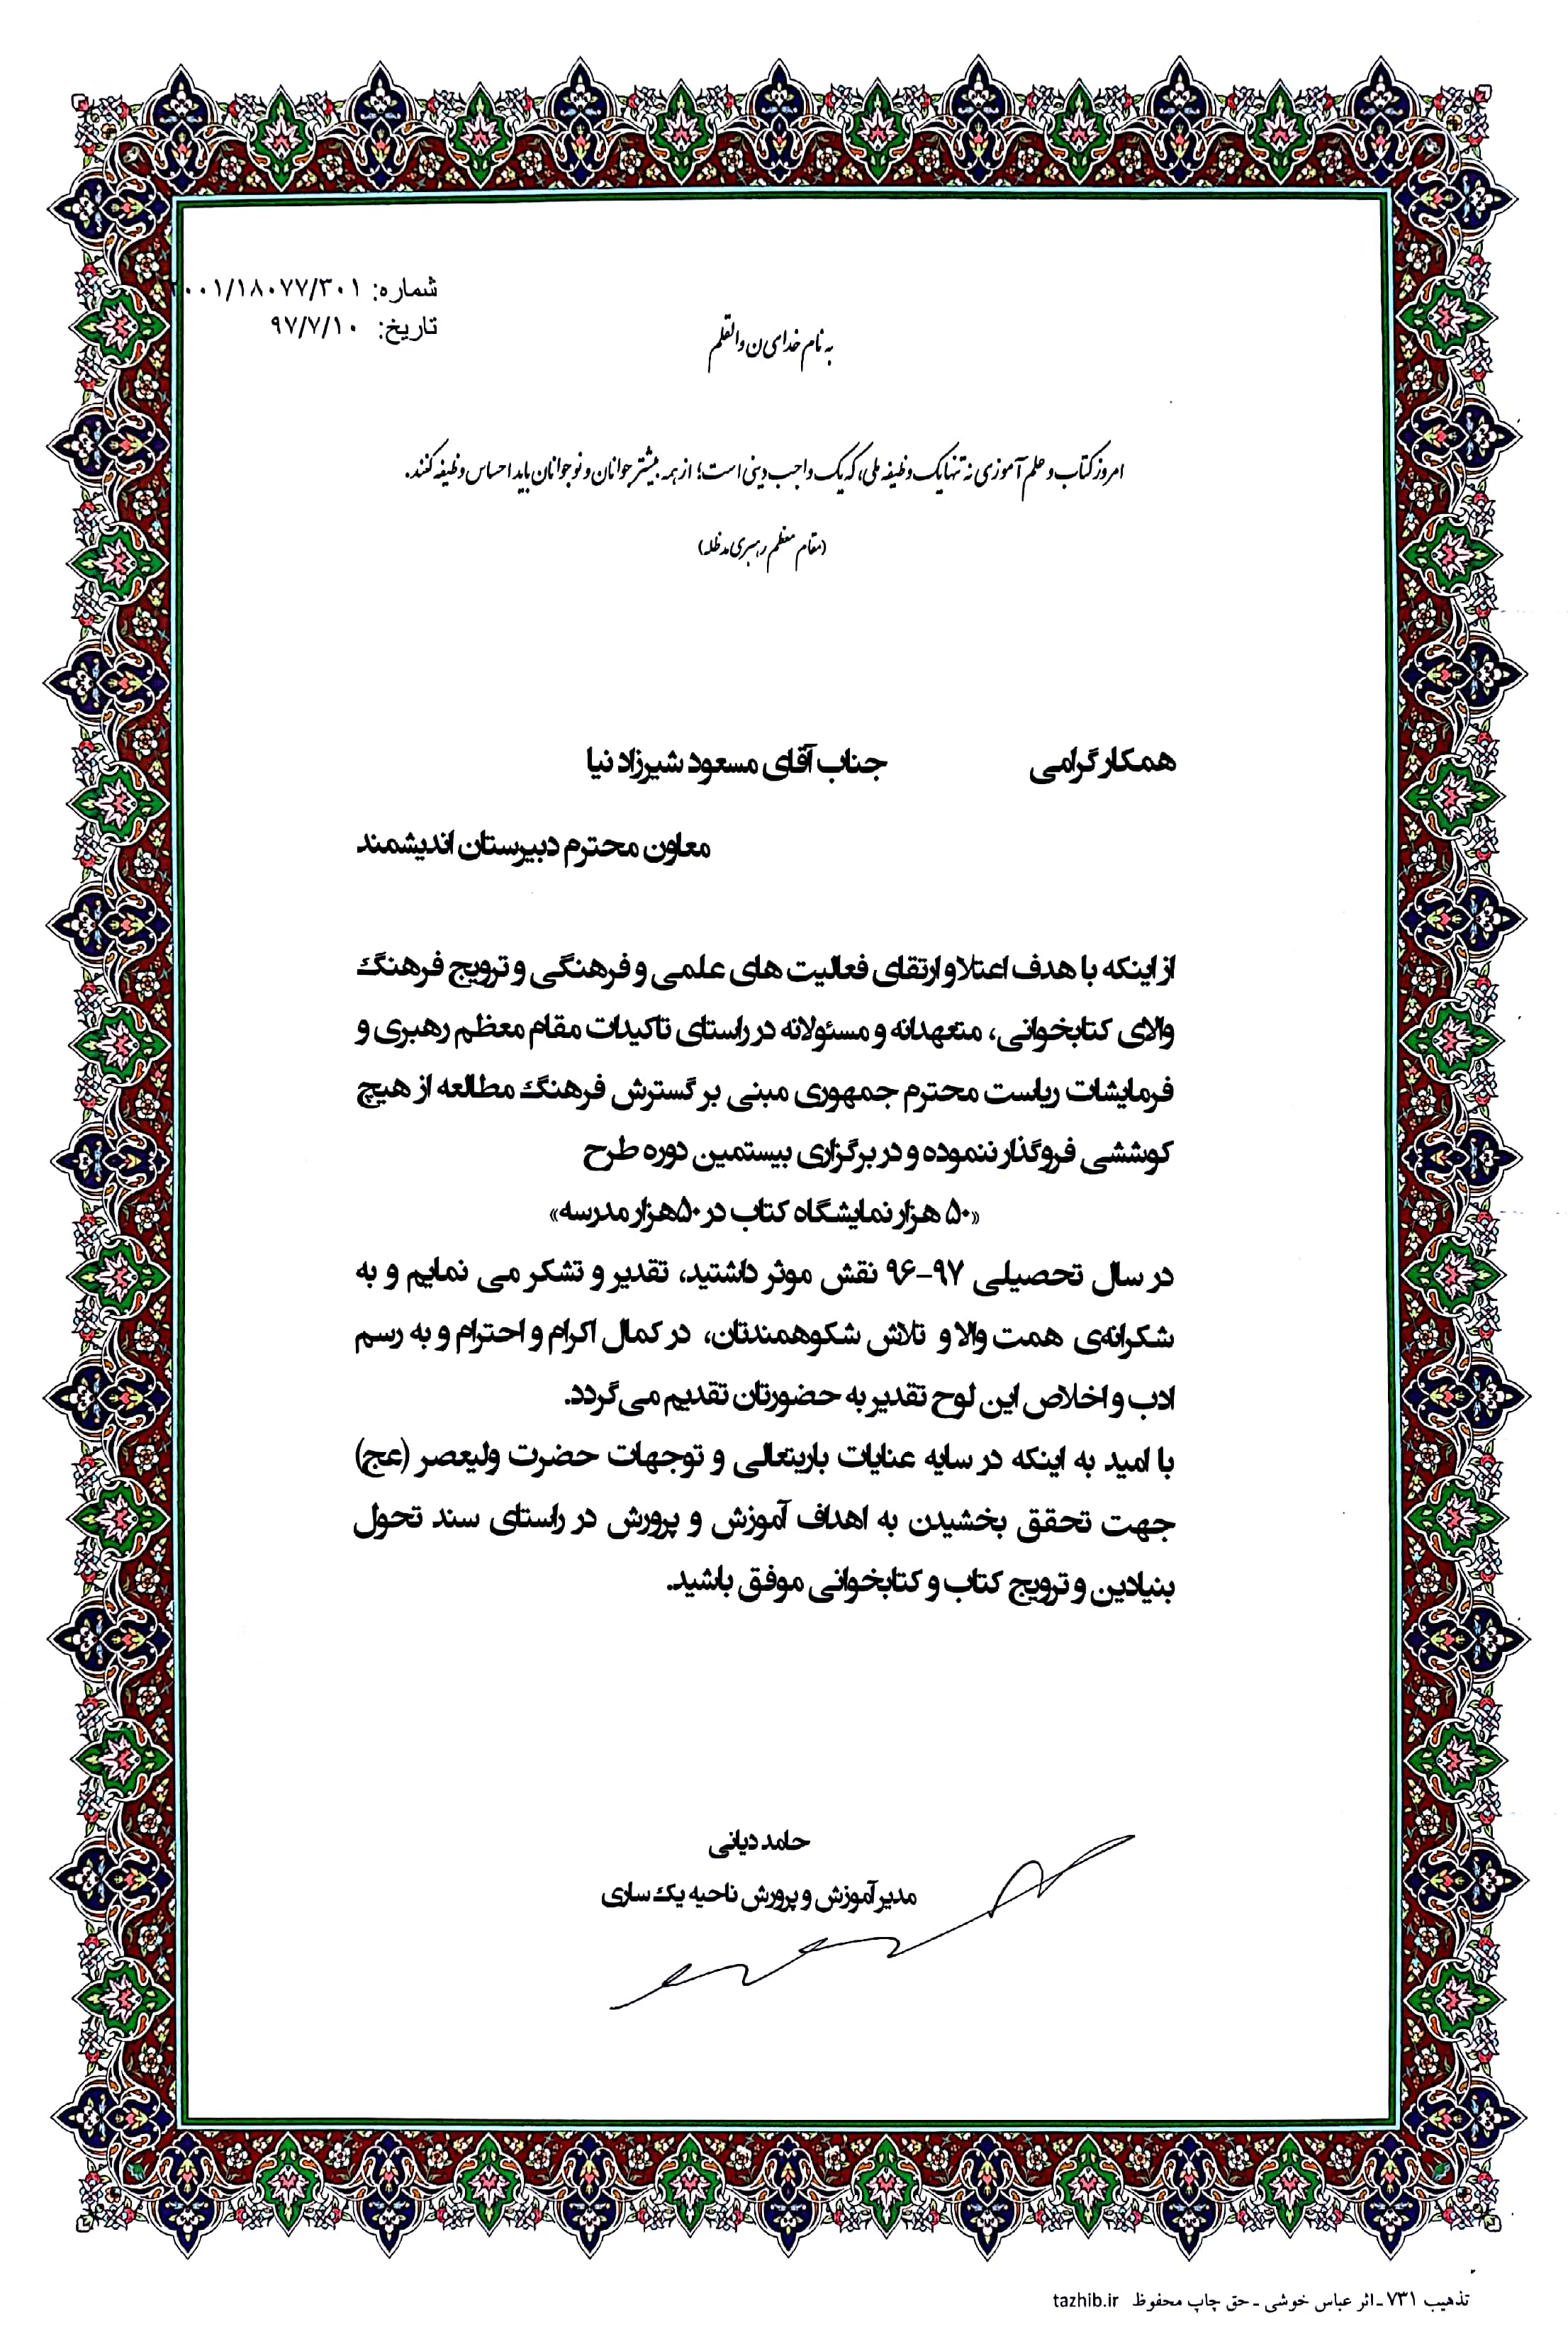 شماره: ۰۰۱/۱۸۰۷۷/۳۰۱
تاریخ: ۹۷/۷/۱۰
به نام خدای ن والقلم
امروز کتاب و علم آموزی نه تنها یک وظیفه ملی، که یک واجب دینی است؛ از همه بیشتر جوانان و نوجوانان باید احساس وظیفه کنند.
(مقام معظم رهبری مدظله)
همکار گرامی جناب آقای مسعود شیرزاد نیا
معاون محترم دبیرستان اندیشمند
از اینکه با هدف اعتلا و ارتقای فعالیت های علمی و فرهنگی و ترویج فرهنگ
والای کتابخوانی، متعهدانه و مسئولانه در راستای تاکیدات مقام معظم رهبری و
فرمایشات ریاست محترم جمهوری مبنی بر گسترش فرهنگ مطالعه از هیچ
کوششی فروگذار ننموده و در برگزاری بیستمین دوره طرح
«۵۰ هزار نمایشگاه کتاب در ۵۰هزار مدرسه»
در سال تحصیلی ۹۷-۹۶ نقش موثر داشتید، تقدیر و تشکر می نمایم و به
شکرانه‌ی همت والا و تلاش شکوهمندتان، در کمال اکرام و احترام و به رسم
ادب و اخلاص این لوح تقدیر به حضورتان تقدیم می‌گردد.
با امید به اینکه در سایه عنایات باریتعالی و توجهات حضرت ولیعصر (عج)
جهت تحقق بخشیدن به اهداف آموزش و پرورش در راستای سند تحول
بنیادین و ترویج کتاب و کتابخوانی موفق باشید.
حامد دیانی
مدیر آموزش و پرورش ناحیه یک ساری
تذهیب ۷۳۱ - اثر عباس خوشی - حق چاپ محفوظ tazhib.ir